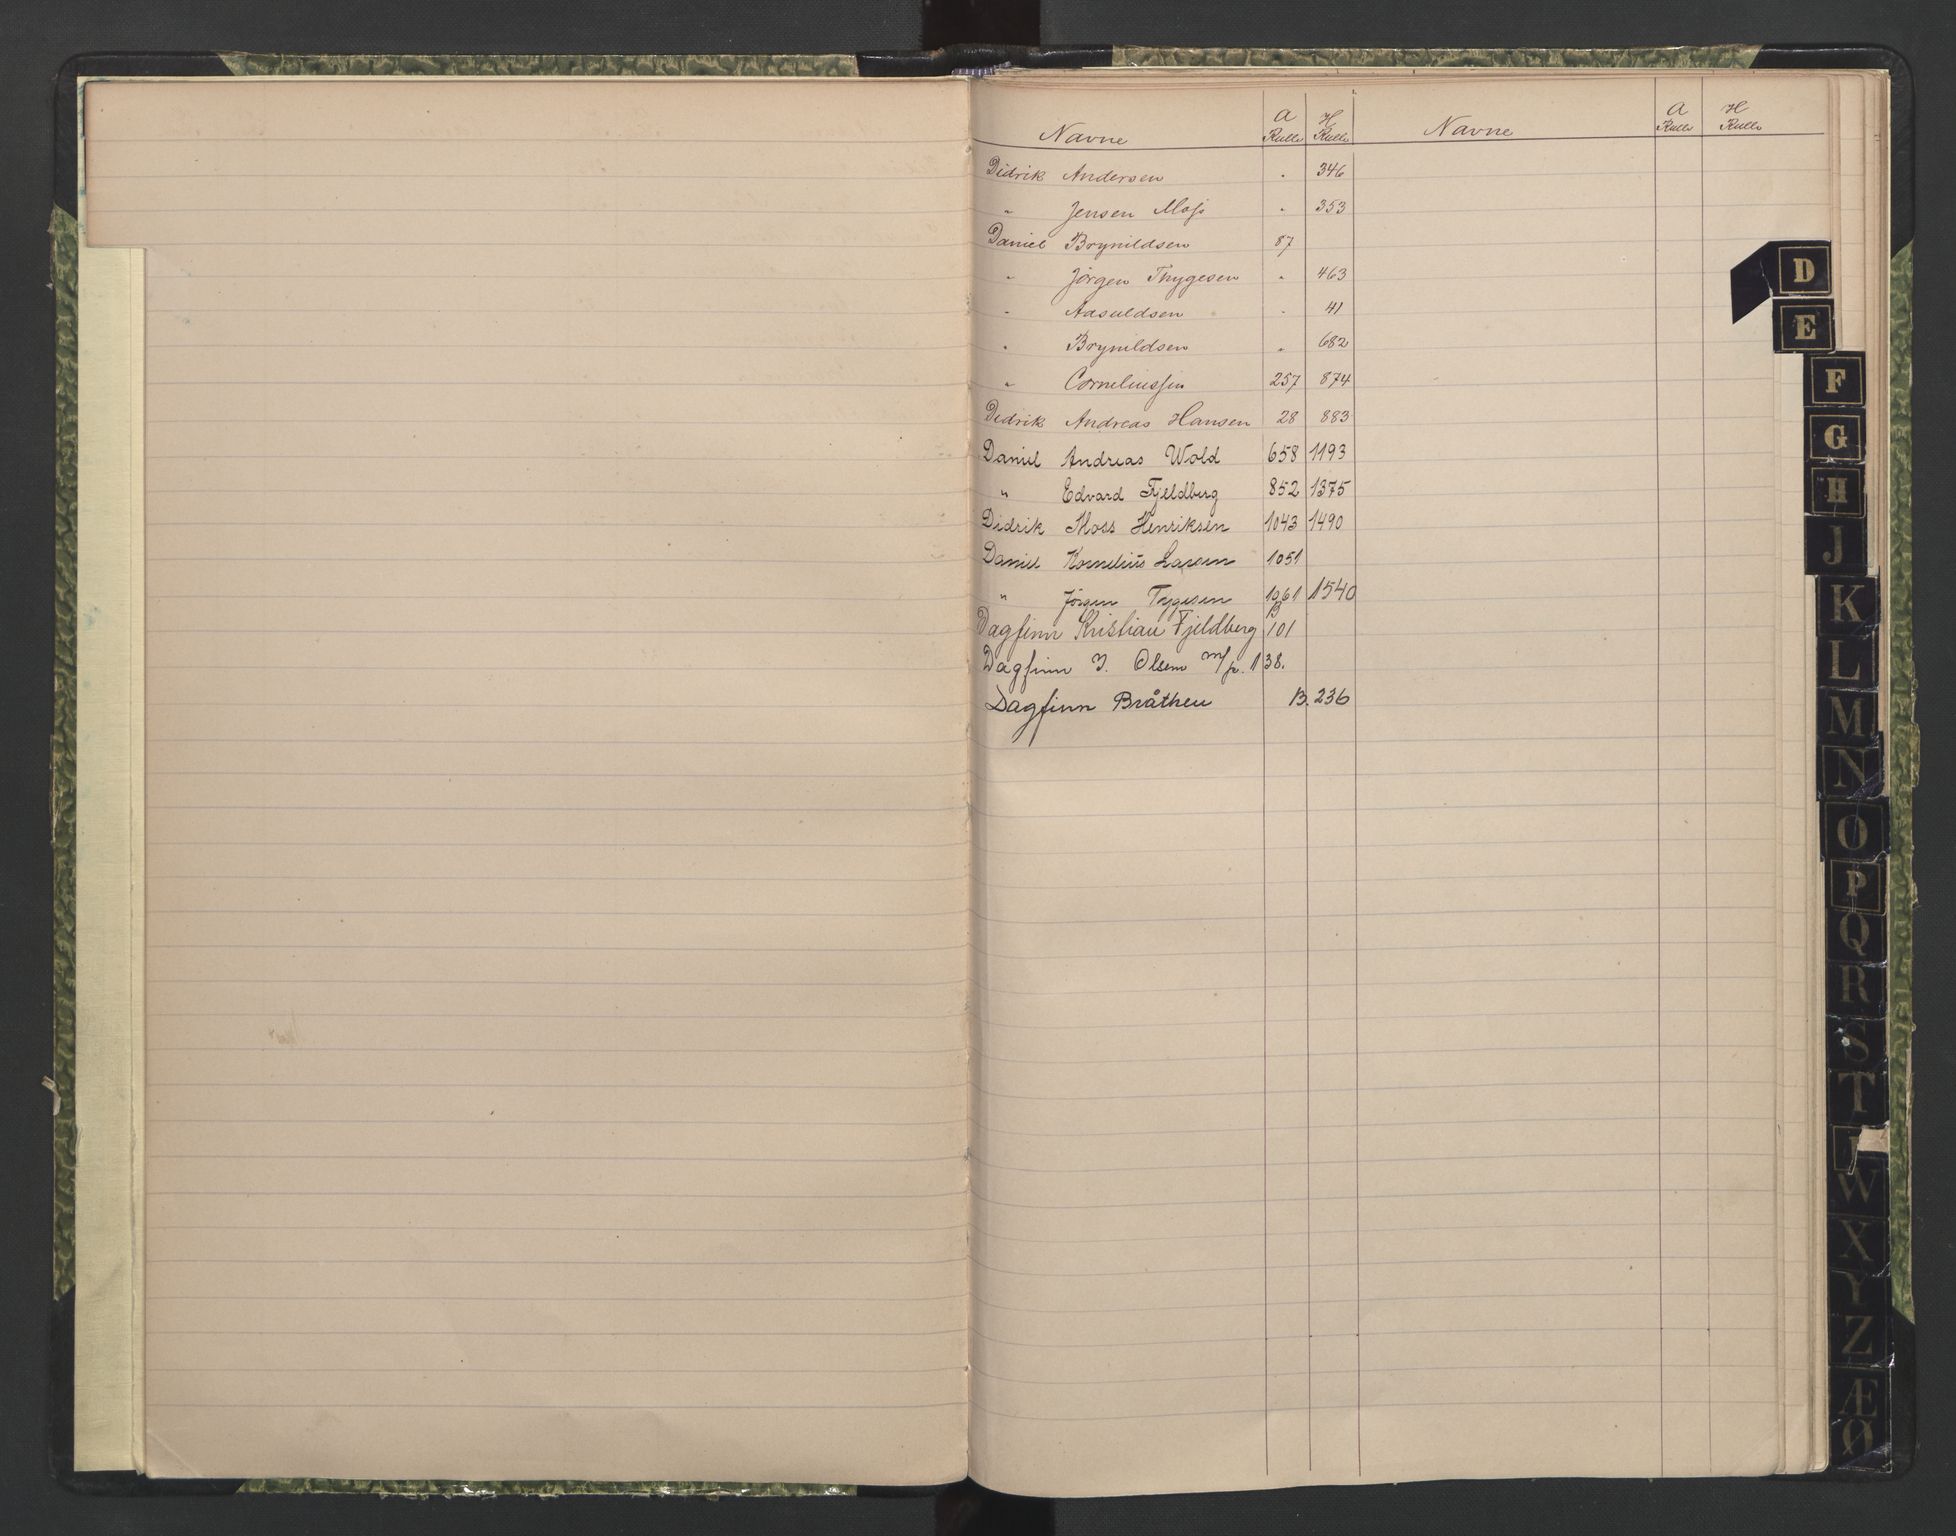 Navne A Rulle H Rulle Navne A Rulle H Rulle
Didrik Andersen " 346
" Jensen Moss " 353
Daniel Brynildsen 87
" Jørgen Thygesen " 463
" Aasuldsen " 41
" Brynildsen " 682
" Corneliussen 257 874
Didrik Andreas Hansen 28 883
Daniel Andreas Wold 658 1193
" Edvard Fjeldberg 852 1375
Didrik Moss Henriksen 1043 1490
Daniel Kornelius Larsen 1051
" Jørgen Tygesen 1061 1540
Dagfinn Kristian Fjeldberg B 101
Dagfinn J. Olsen m/p. 138.
Dagfinn Bråthen B. 236
D
E
F
G
H
J
K
L
M
N
O
P
Q
R
S
T
W
X
Y
Z
Æ
Ø